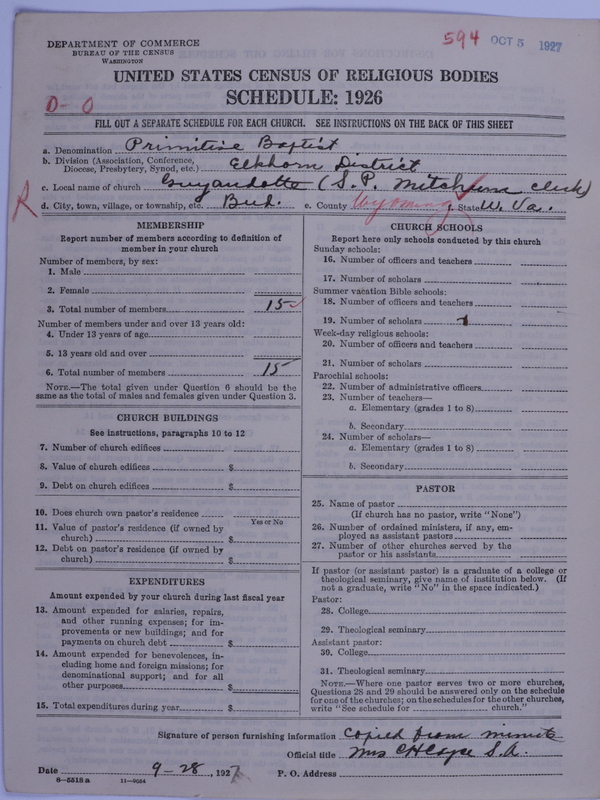 DEPARTMENT OF COMMERCE
BUREAU OF THE CENSUS
WASHINGTON
594 OCT 5 1927
UNITED STATES CENSUS OF RELIGIOUS BODIES
SCHEDULE: 1926
D-O
FILL OUT A SEPARATE SCHEDULE FOR EACH CHURCH. SEE INSTRUCTIONS ON THE BACK OF THIS SHEET
a. Denomination Primitive Baptist
b. Division (Association, Conference, Diocese, Presbytery, Synod, etc.) Elkhorn District
c. Local name of church Guyandotte (S.P. Mitchum clerk)
R d. City, town, village, or township, etc. Bud. e. County Wyoming f. State W. Va.
MEMBERSHIP
Report number of members according to definition of
member in your church
Number of members, by sex:
1. Male
2. Female
3. Total number of members 15
Number of members under and over 13 years old:
4. Under 13 years of age
5. 13 years old and over
6. Total number of members 15
NOTE.—The total given under Question 6 should be the
same as the total of males and females given under Question 3.
CHURCH BUILDINGS
See instructions, paragraphs 10 to 12
7. Number of church edifices
8. Value of church edifices $
9. Debt on church edifices $
10. Does church own pastor's residence
Yes or No
11. Value of pastor's residence (if owned by
church) $
12. Debt on pastor's residence (if owned by
church) $
EXPENDITURES
Amount expended by your church during last fiscal year
13. Amount expended for salaries, repairs,
and other running expenses; for im-
provements or new buildings; and for
payments on church debt $
14. Amount expended for benevolences, in-
cluding home and foreign missions; for
denominational support; and for all
other purposes $
15. Total expenditures during year $
CHURCH SCHOOLS
Report here only schools conducted by this church
Sunday schools:
16. Number of officers and teachers
17. Number of scholars
Summer vacation Bible schools:
18. Number of officers and teachers
19. Number of scholars
Week-day religious schools:
20. Number of officers and teachers
21. Number of scholars
Parochial schools:
22. Number of administrative officers
23. Number of teachers—
a. Elementary (grades 1 to 8)
b. Secondary
24. Number of scholars—
a. Elementary (grades 1 to 8)
b. Secondary
PASTOR
25. Name of pastor
(If church has no pastor, write "None")
26. Number of ordained ministers, if any, em-
ployed as assistant pastors
27. Number of other churches served by the
pastor or his assistants
If pastor (or assistant pastor) is a graduate of a college or
theological seminary, give name of institution below. (If
not a graduate, write "No" in the space indicated.)
Pastor:
28. College
29. Theological seminary
Assistant pastor:
30. College
31. Theological seminary
NOTE.—Where one pastor serves two or more churches,
Questions 28 and 29 should be answered only on the schedule
for one of the churches; on the schedules for the other churches,
write "See schedule for church."
Signature of person furnishing information Copied from minute
Official title Mrs S.A.
Date 9-28, 1927 P. O. Address
8-5518a 11-9084